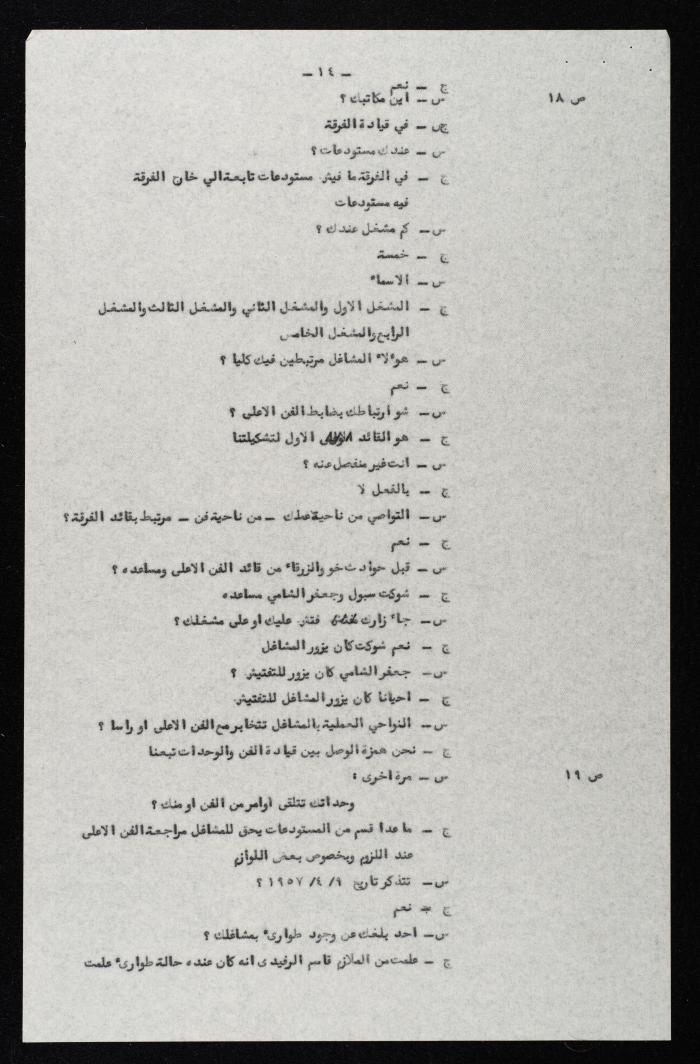 ـ ١٤ ـ
ج ـ نعم
ص ١٨ س ـ اين مكاتبك ؟
ج ـ في قيادة الفرقة
س ـ عندك مستودعات ؟
ج ـ في الفرقة ما فيش مستودعات تابعة الي خان الفرقة
فيه مستودعات
س ـ كم مشغل عندك ؟
ج ـ خمسة
س ـ الاسماء
ج ـ المشغل الاول والمشغل الثاني والمشغل الثالث والمشغل
الرابع والمشغل الخامس
س ـ هوءلاء المشاغل مرتبطين فيك كليا ؟
ج ـ نعم
س ـ شو ارتباطك بضابط الفن الاعلى ؟
ج ـ هو القائد الاول لتشكيلتنا
س ـ انت غير منفصل عنه ؟
ج ـ بالفعل لا
س ـ التواصي من ناحية عملك ـ من ناحية فن ـ مرتبط بقائد الفرقة ؟
ج ـ نعم
س ـ قبل حوادث خو والزرقاء من قائد الفن الاعلى ومساعده ؟
ج ـ شوكت سبول وجعفر الشامي مساعده
س ـ جاء زارك فتش عليك او على مشغلك ؟
ج ـ نعم شوكت كان يزور المشاغل
س ـ جعفر الشامي كان يزور للتفتيش ؟
ج ـ احيانا كان يزور المشاغل للتفتيش
س ـ النواحي العملية بالمشاغل تتخابر مع الفن الاعلى او راسا ؟
ج ـ نحن همزة الوصل بين قيادة الفن والوحدات تبعنا
ص ١٩ س ـ مرة اخرى :
وحداتك تتلقى اوامر من الفن او منك ؟
ج ـ ما عدا قسم من المستودعات يحق للمشاغل مراجعة الفن الاعلى
عند اللزوم وبخصوص بعض اللوازم
س ـ تتذكر تاريخ ٩/ ٤/ ١٩٥٧ ؟
ج ـ نعم
س ـ احد بلغك عن وجود طوارىء بمشاغلك ؟
ج ـ علمت من الملازم قاسم الرفيدي انه كان عنده حالة طوارىء علمت